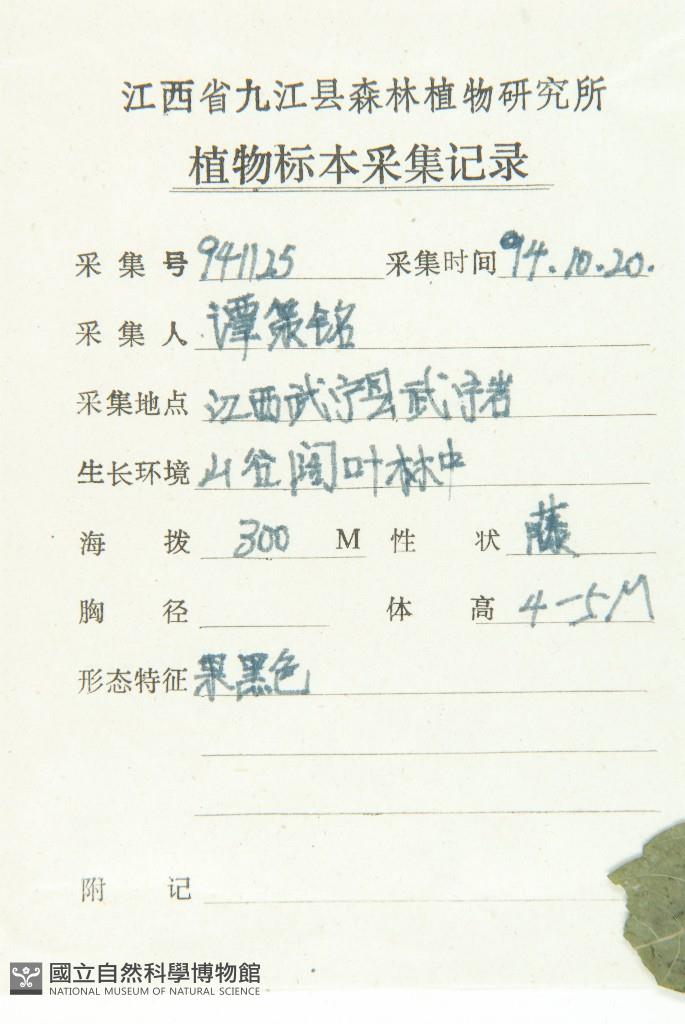 江西省九江县森林植物研究所
植物标本采集记录
采集号 941125 采集时间 94.10.20.
采集人 谭策铭
采集地点 江西武宁县武宁岩
生长环境 山谷阔叶林中
海拨 300 M 性状 藤
胸径 体高 4-5M
形态特征 果黑色
附记
國立自然科學博物館
NATIONAL MUSEUM OF NATURAL SCIENCE